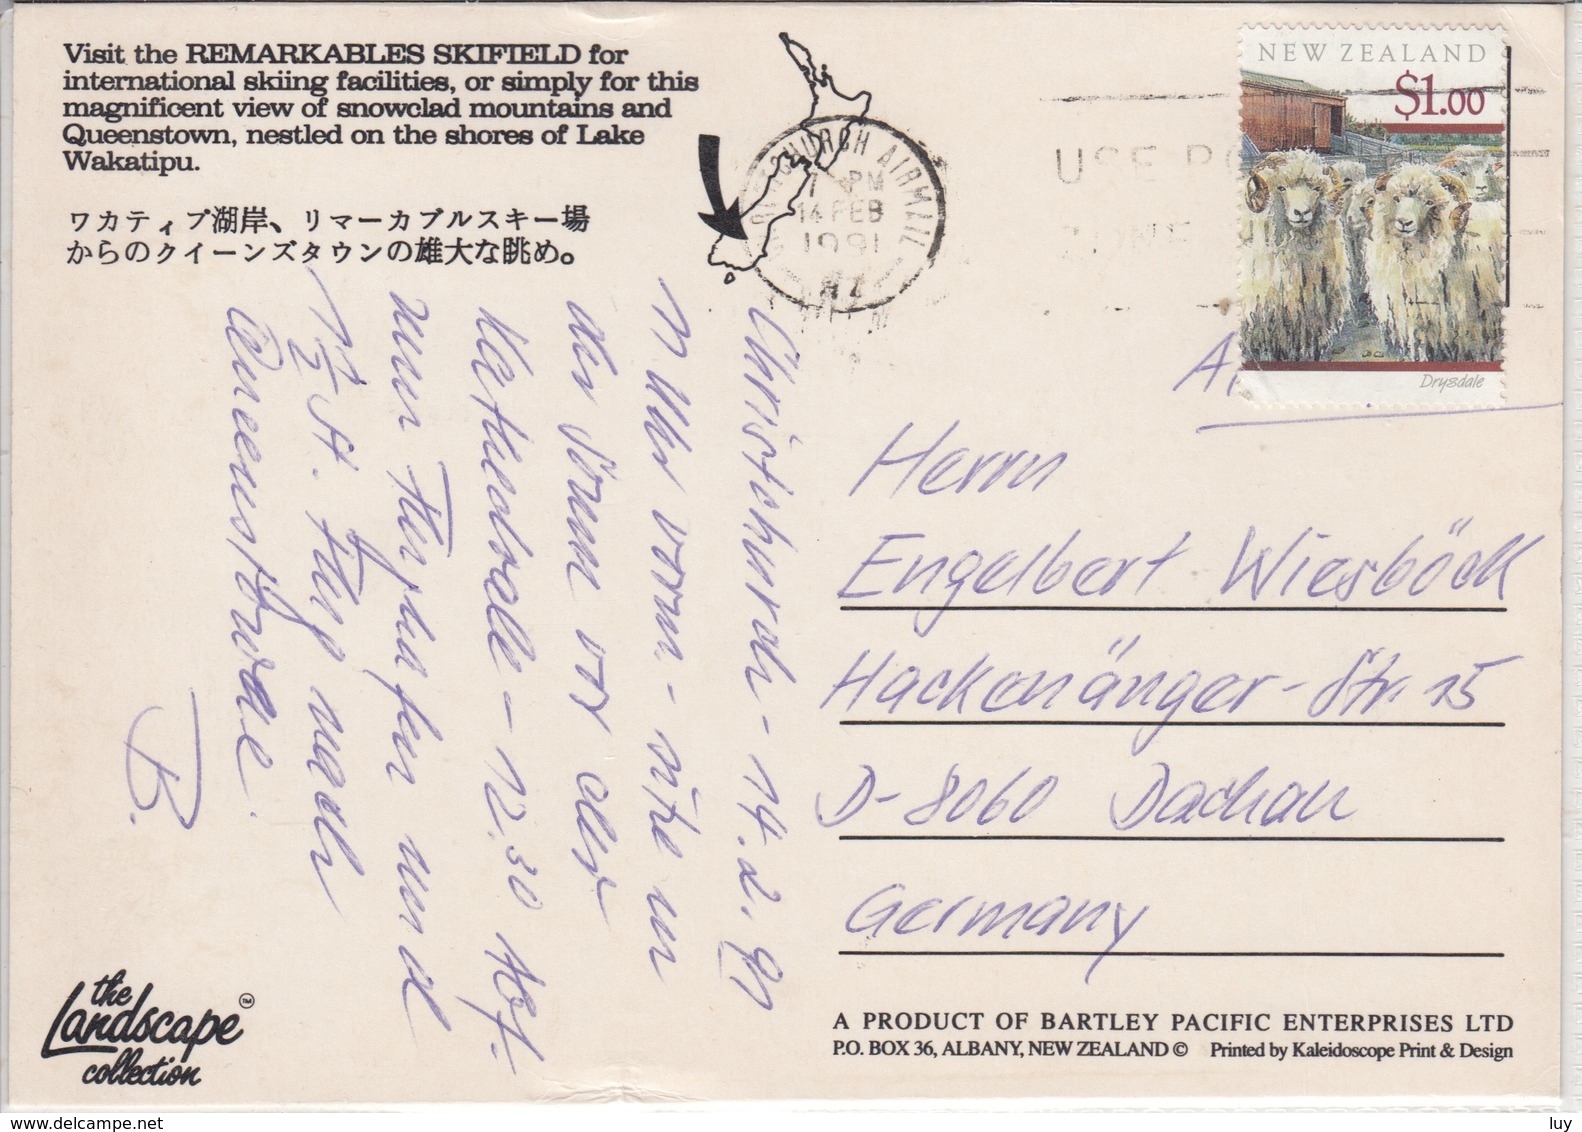 Visit the REMARKABLES SKIFIELD for
international skiing facilities, or simply for this
magnificent view of snowclad mountains and
Queenstown, nestled on the shores of Lake
Wakatipu.
ワカティプ湖岸、リマーカブルスキー場
からのクイーンズタウンの雄大な眺め。
CHURCH AIRMAIL
7 PM
14 FEB
1991
NZ
USE PO
NEW ZEALAND
$1.00
Drysdale
Christchurch - 14.2.91
11 Uhr vorm. - sitze in
der Sonne vor der
Kathedrale - 12.30 Abf.
zum Flughafen und
1 1/2 St. Flug nach
Queenstown.
B.
Herrn
Engelbert Wiesböck
Hackenänger-Str. 15
D-8060 Dachau
Germany
the
Landscape ™
collection
A PRODUCT OF BARTLEY PACIFIC ENTERPRISES LTD
P.O. BOX 36, ALBANY, NEW ZEALAND © Printed by Kaleidoscope Print & Design
www.delcampe.net
luy